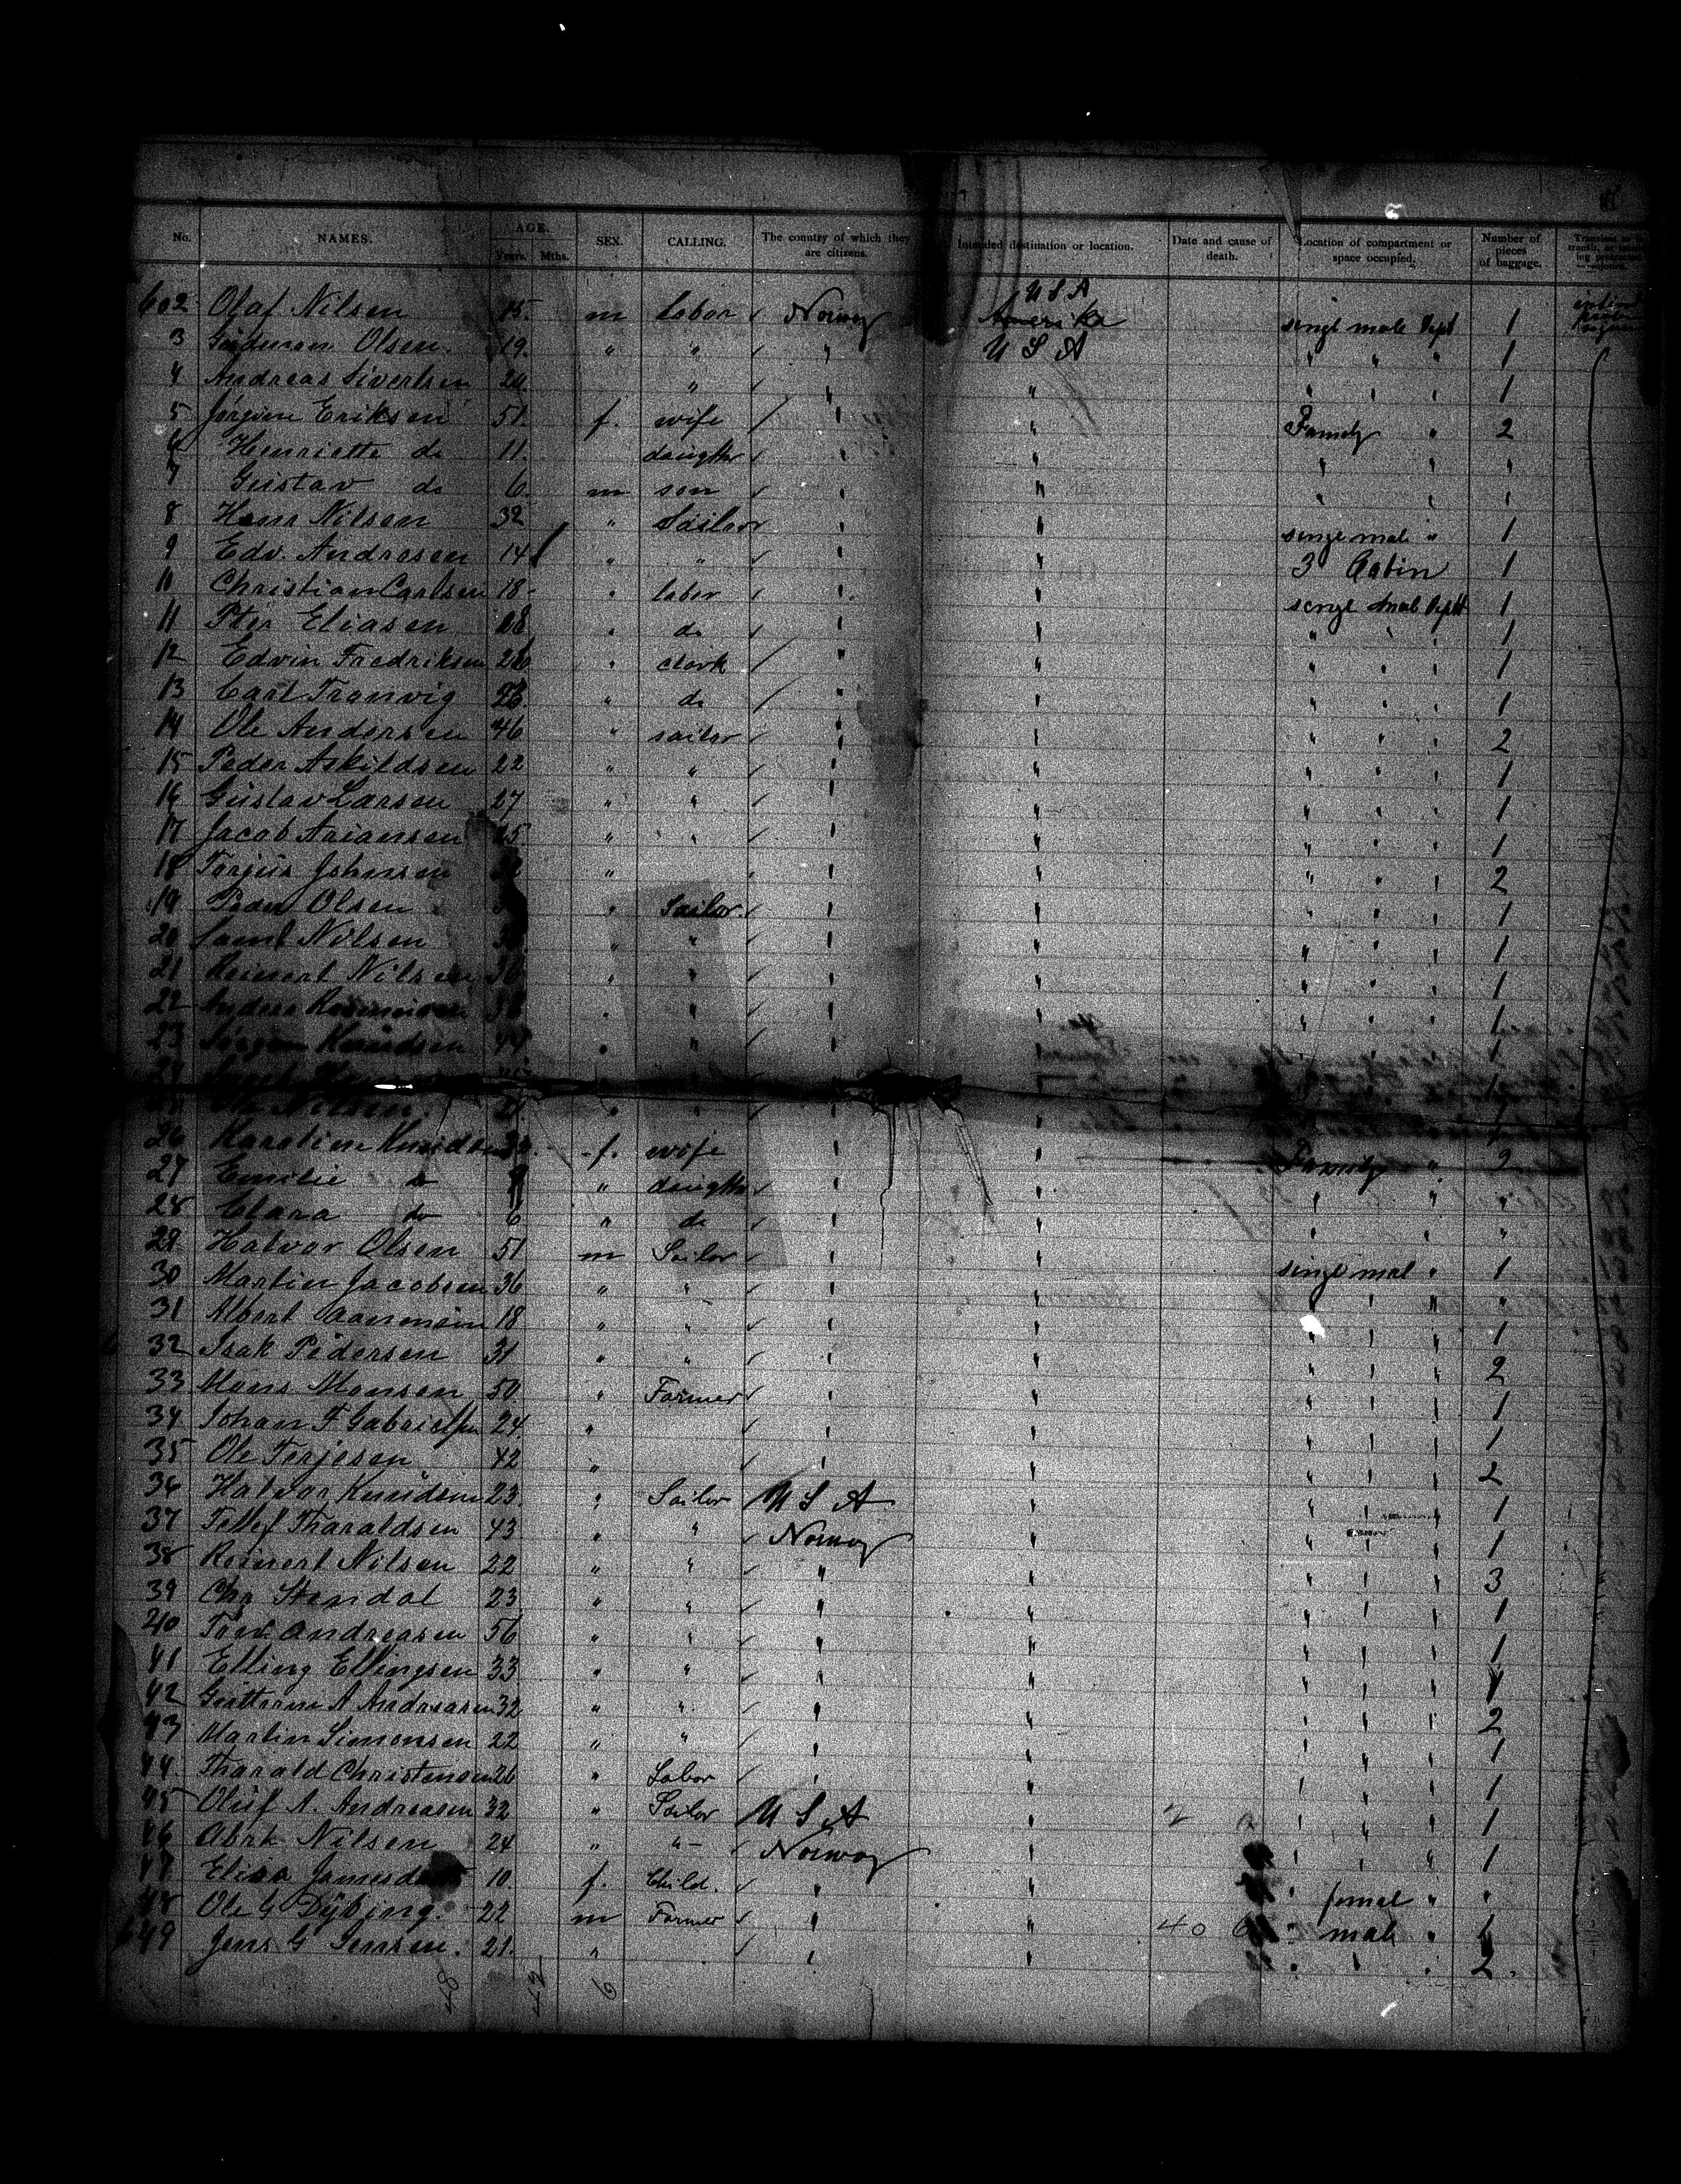 No. NAMES. AGE. Years. Mths. SEX. CALLING. The country of which they are citizens. Intended destination or location. Date and cause of death. Location of compartment or space occupied. Number of pieces of baggage.
USA
602 Olaf Nilsen 15. m labor Norway Amerika singl male Dept 1
3 Olsen. 19. " " " U S A " " " 1
4 Andreas Sivertsen 20 " " " " " " 1
5 Jørgine Eriksen 51. f. wife " " Family " 2
6 Henriette do 11. daugther " " " " "
7 Gustav do 6. m son " " " " "
8 Hans Nilsen 32 " Sailor " " singe male " 1
9 Edv. Andresen 14 " " " 3 Cabin 1
10 Christian Carlsen 18 " labor " " singl mal Dept 1
11 Eliasen 28 " do " " " " " 1
12 Edwin Fredriksen 26 " clerk " " " " " 1
13 Carl Tranvig " do " " " " " 1
14 Ole Andersen 46 " sailor " " " " " 2
15 Peder Askildsen 22 " " " " " " " 1
16 Gustav Larsen 27 " " " " " " " 1
17 Jacob Ariansen " " " " " " " 1
18 Torjus Johnsen " " " " " " 2
19 Olsen " Sailor " " " " " 1
20 Saml Nilsen " " " " " " " 1
21 Reinert Nilsen " " " " " " " 1
22 38 " " " " " " " 1
23 Jørgen Knudsen 44 " " " " " " " 1
Ole Nilsen. " " " "
26 Karoline Knudsen f. wife " " Family " 2
27 Emilie do " daugther " " " " "
28 Clara do 6 " do " " " " "
29 Halvor Olsen 51 m Sailor " " singe mal " 1
30 Martin Jacobsen 36 " " " " " " " "
31 Albert Aanensen 18 " " " " " " " 1
32 Isak Pedersen 31 " " " " " " " 2
33 Mons Monsen 50 " Farmer " " " " " 1
34 Johan F Gabrielsen 24. " " " " " 1
35 Ole Terjesen 42 " " " " " " 2
36 Halvor Knudsen 23. " Sailor U S A " " " " 1
37 Tellef Tharaldsen 43 " " Norway " " " " 1
38 Reinert Nilsen 22 " " " " " " " 3
39 Chr Stendal 23 " " " " " " " 1
40 Andreasen 56 " " " " " " " 1
41 Elling Ellingsen 33 " " " " " " " 1
42 Guttorm A Andreasen 32 " " " " " " " 2
43 Martin Simonsen 22 " " " " " " " 1
44 Tharald Christensen 26 " Labor " " " " " 1
45 Oluf A. Andreasen 32 " Sailor U S A " " " " 1
46 Abrh Nilsen 24 " " Norway " " " 1
47 Elisa 10. f. Child. " " " femal " "
48 Ole G Dybing. 22 m Farmer " " 40 male " 1
649 Jens G Jensen. 21. " " " " " " 2.
48 42 6